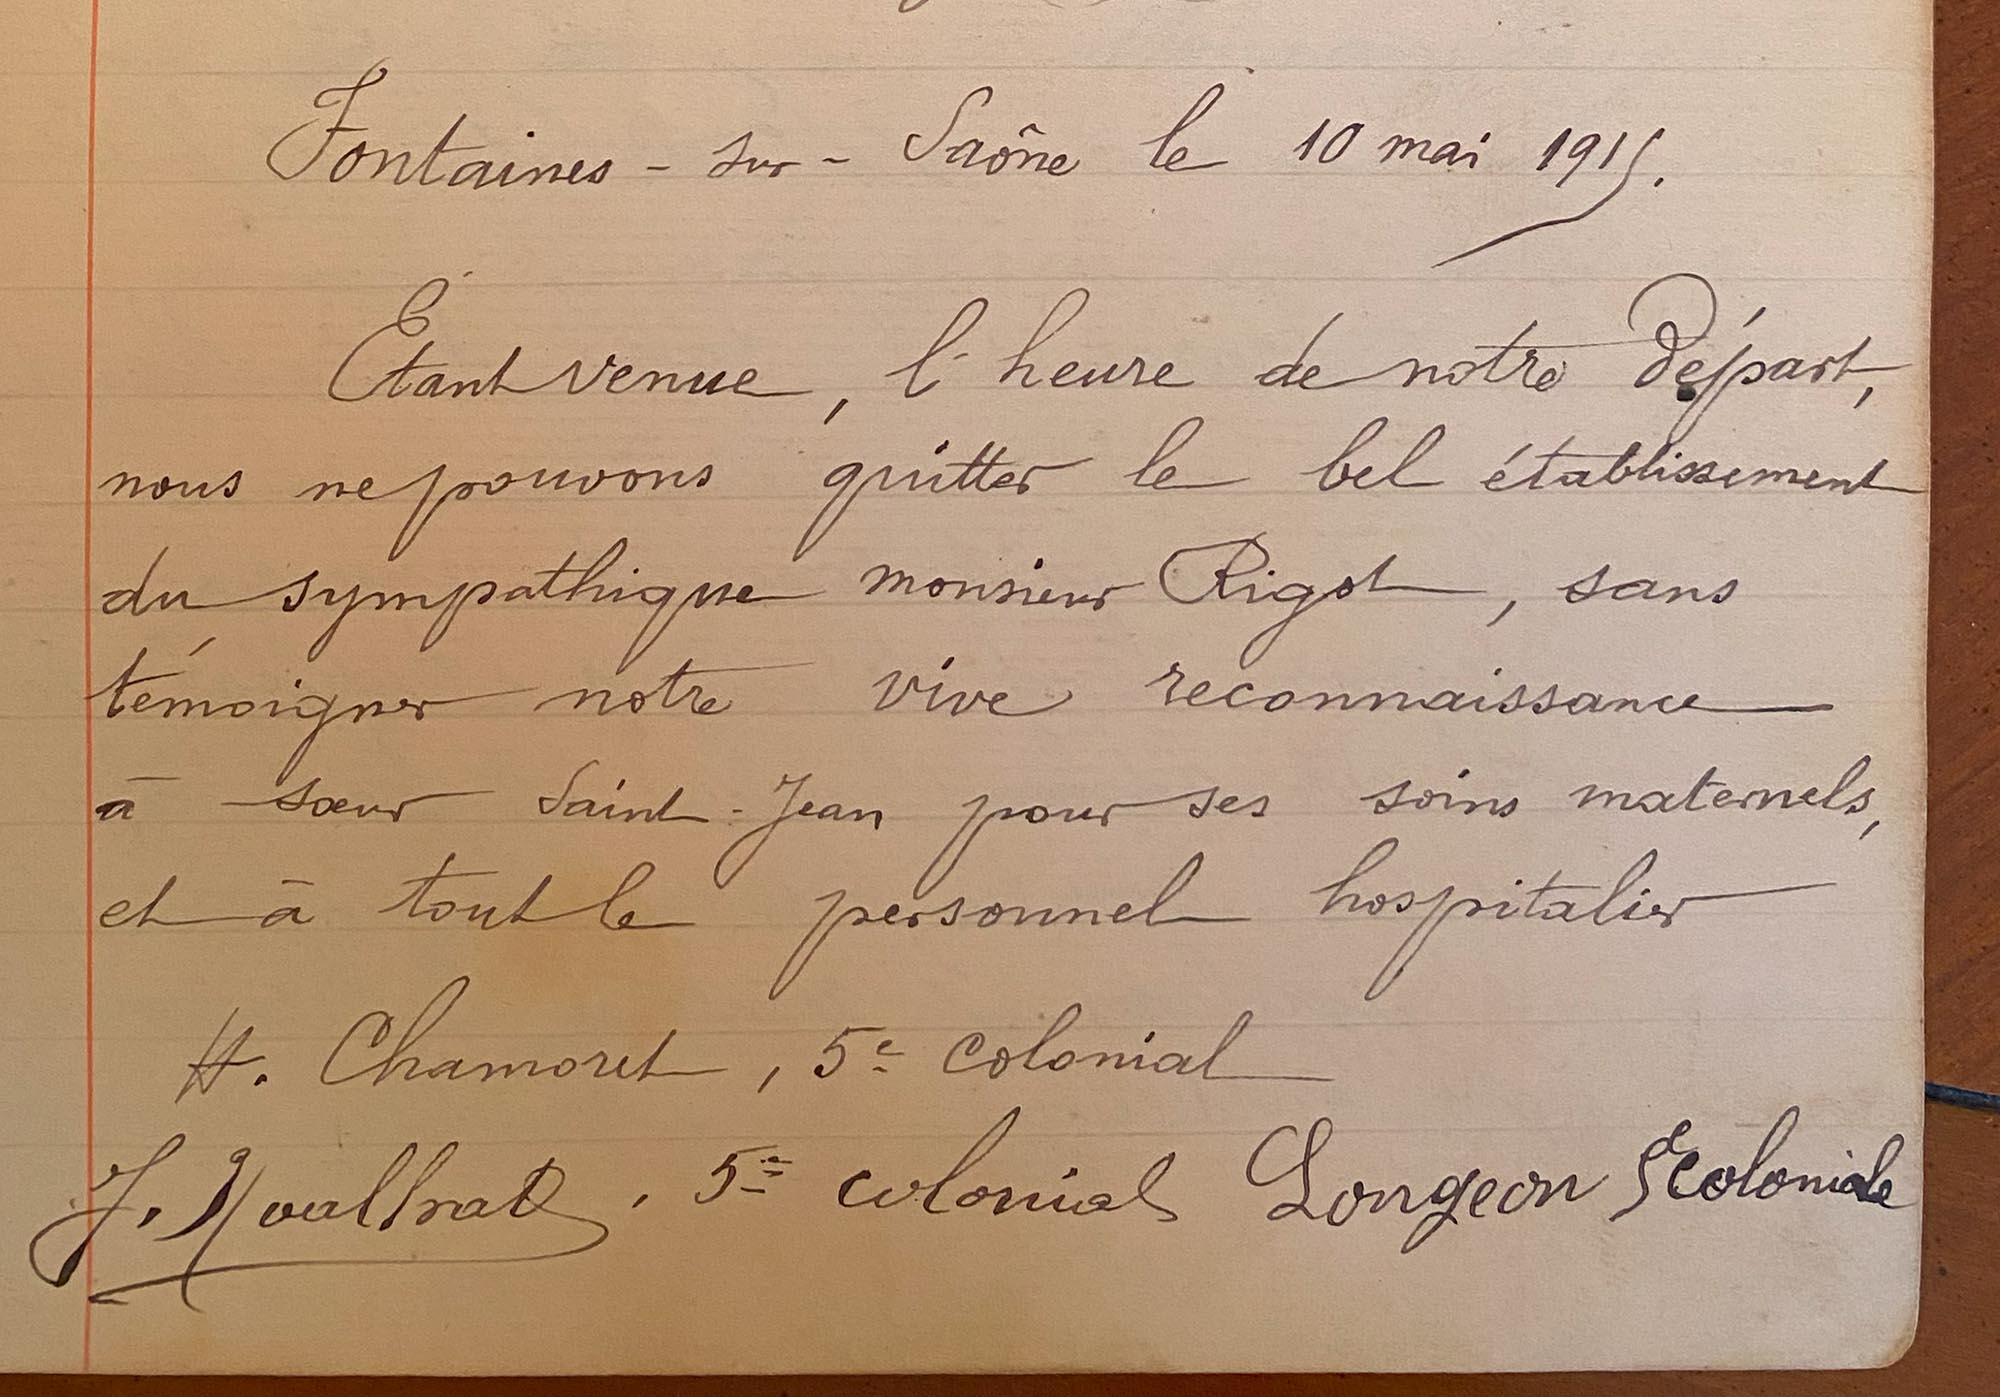 Fontaines - sur - Saône le 10 mai 1915.
Étant venue, l'heure de notre départ,
nous ne pouvons quitter le bel établissement
du sympathique monsieur Rigot, sans
témoigner notre vive reconnaissance
à sœur Saint-Jean pour ses soins maternels,
et à tout le personnel hospitalier
H. Chamoret, 5e colonial
J. 5e colonial Longeon 5e coloniale